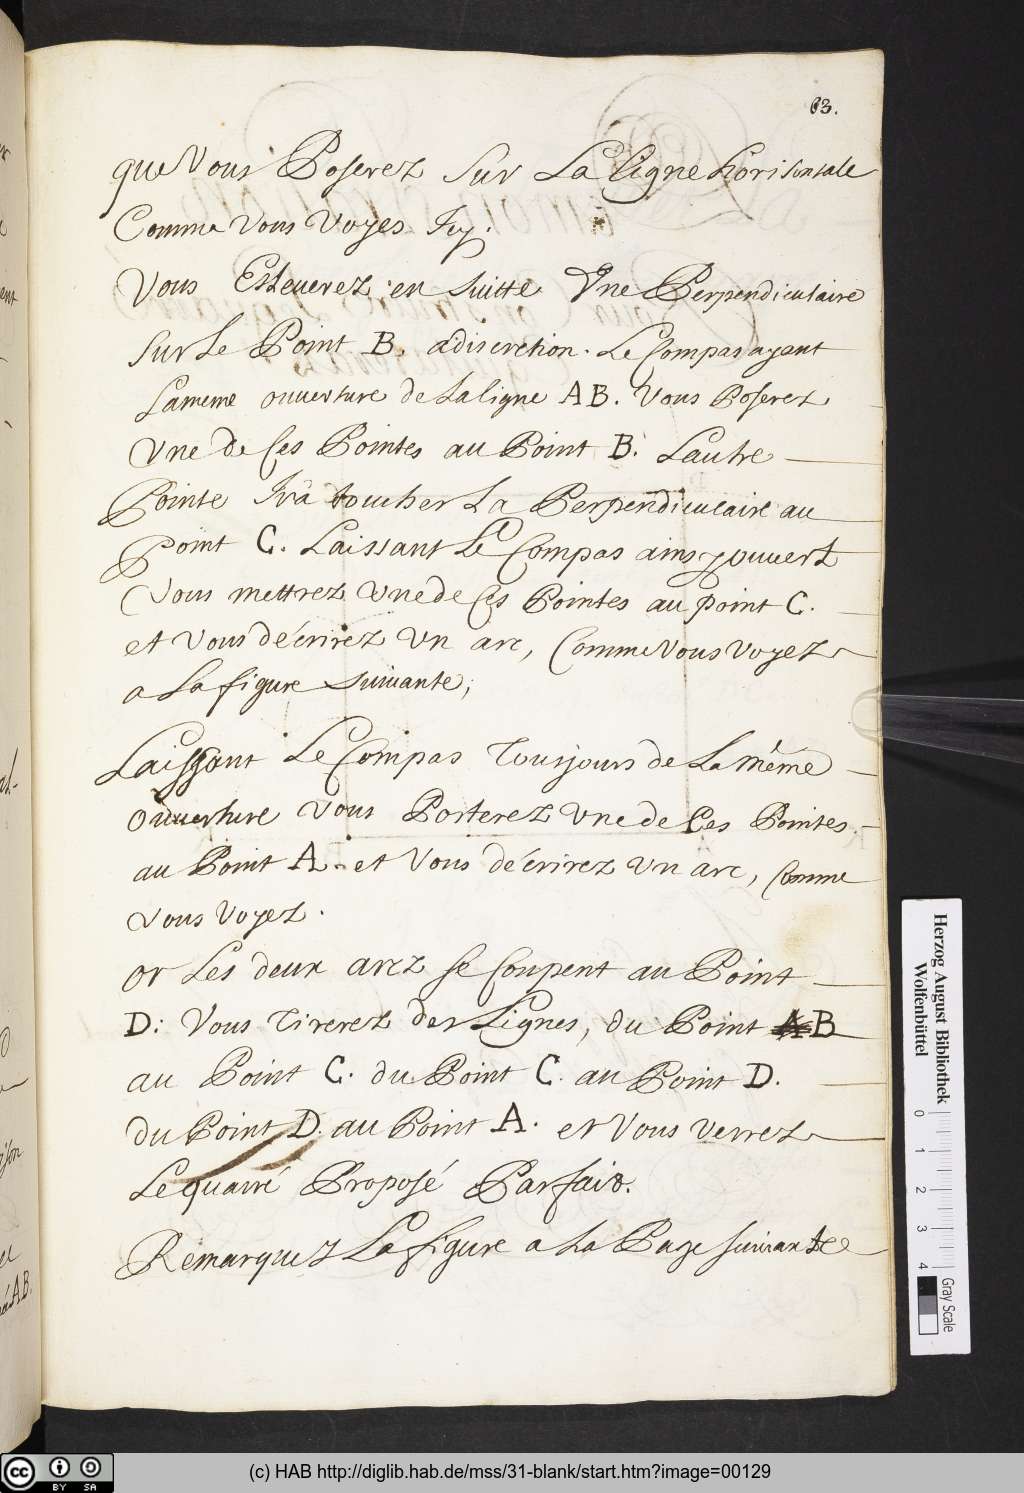 63.
que Vous Poserez sur La ligne horisontale
Comme Vous Voyes Icy.
Vous Esleuerez en suitte Vne Perpendiculaire
sur Le Point B. a discretion. Le Compas ayant
La meme ouuerture de La ligne AB. Vous Poserez
Vne de Ces Pointes au Point B. L'autre
Pointe Ira toucher La Perpendiculaire au
Point C. Laissant Le Compas ainsy ouuert
Vous mettrez Vne de Ces Pointes au point C.
et Vous décrirez Vn arc, Comme Vous Voyez
a La figure suiuante;
Laissant Le Compas Tousjours de La même
Ouuerture Vous Porterez Vne de Ces Pointes
au Point A. et Vous décrirez Vn arc, Comme
Vous Voyez.
Or Les deux arcz se Coupent au Point
D: Vous Tirerez des Lignes, du Point B
au Point C. du Point C. au Point D.
du Point D. au Point A. et Vous Verrez
Le quarré Proposé Parfait.
Remarquez La figure a La Page suiuante
Herzog August Bibliothek
Wolfenbüttel
0 1 2 3 4
Gray Scale
AB.
cc BY SA
(c) HAB http://diglib.hab.de/mss/31-blank/start.htm?image=00129